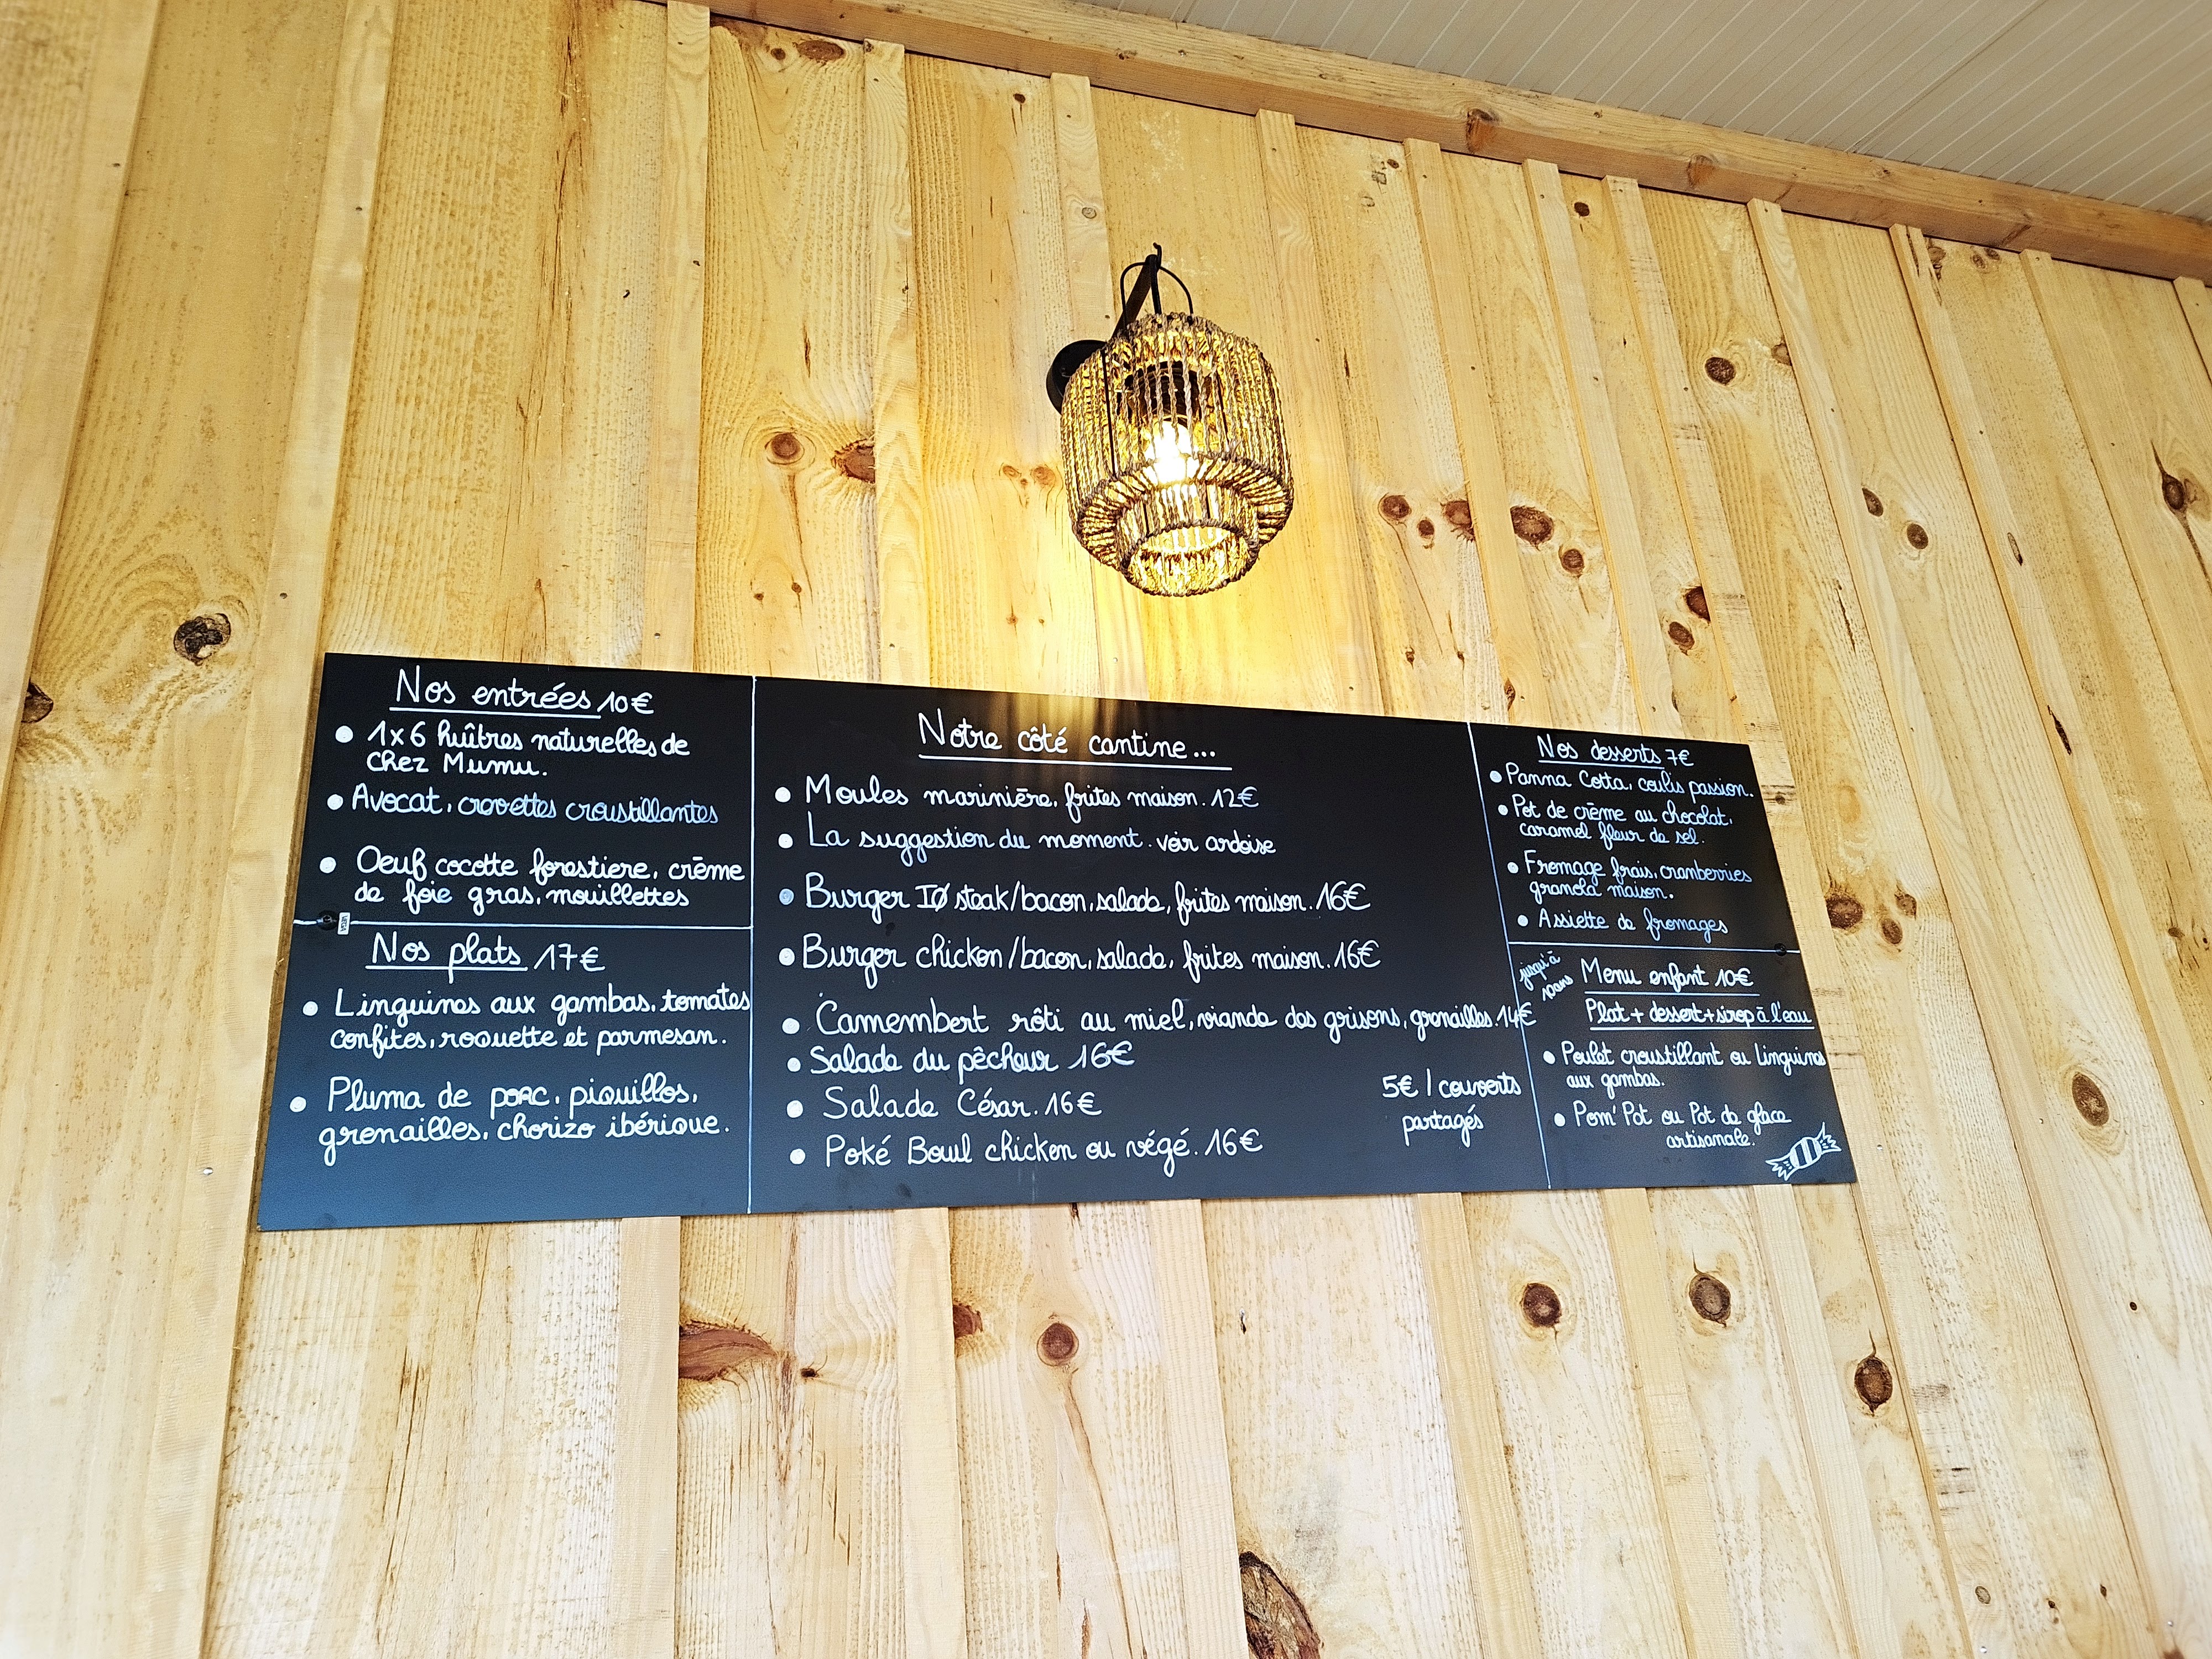 Nos entrées 10€
• 1x6 huîtres naturelles de
chez Mumu.
• Avocat, crevettes croustillantes
• Oeuf cocotte forestiere, crème
de foie gras, mouillettes
Nos plats 17€
• Linguines aux gambas, tomates
confites, roquette et parmesan.
• Pluma de porc, piquillos,
grenailles, chorizo ibérique.
Notre côté cantine...
• Moules marinière, frites maison. 12€
• La suggestion du moment. voir ardoise
• Burger IØ steak/bacon, salade, frites maison. 16€
• Burger chicken/bacon, salade, frites maison. 16€
• Camembert rôti au miel, viande des grisons, grenailles. 14€
• Salade du pêcheur 16€
• Salade César. 16€
• Poké Bowl chicken ou végé. 16€
5€ / couverts
partagés
Nos desserts 7€
• Panna Cotta, coulis passion.
• Pot de crème au chocolat,
caramel fleur de sel.
• Fromage frais, cranberries
granola maison.
• Assiette de fromages
jusqu'à
10ans
Menu enfant 10€
Plat + dessert + sirop à l'eau
• Poulet croustillant ou Linguines
aux gambas.
• Pom' Pot ou Pot de glace
artisanale.